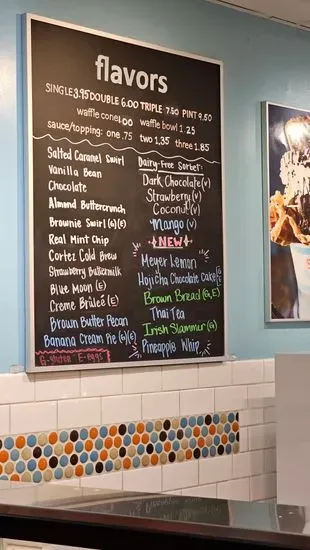 flavors
SINGLE 3.95 DOUBLE 6.00 TRIPLE 7.50 PINT 9.50
waffle cone 1.00 waffle bowl 1.25
sauce/topping: one .75 two 1.35 three 1.85
Salted Caramel Swirl
Vanilla Bean
Chocolate
Almond Buttercrunch
Brownie Swirl (G)(E)
Real Mint Chip
Cortez Cold Brew
Strawberry Buttermilk
Blue Moon (E)
Creme Brûleé (E)
Brown Butter Pecan
Banana Cream Pie (G)(E)
G-gluten E-eggs
Dairy-Free Sorbet:
Dark Chocolate (V)
Strawberry (V)
Coconut (V)
Mango (V)
NEW
Meyer Lemon
Hojicha Chocolate Cake
Brown Bread (G,E)
Thai Tea
Irish Slammer (G)
Pineapple Whip